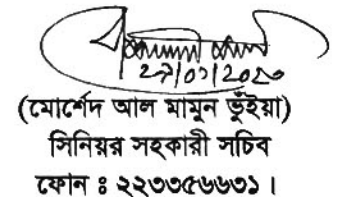 ২৭/০১/২০২০
(মোর্শেদ আল মামুন ভুঁইয়া)
সিনিয়র সহকারী সচিব
ফোন ঃ ২২৩৩৫৬৬৩১ ।